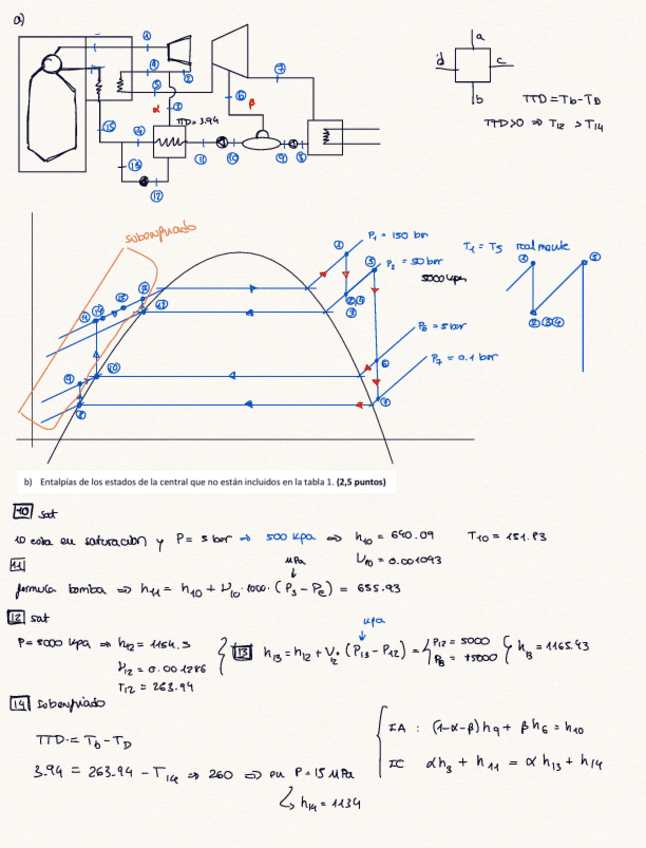 a)
1
4
2
5
α
3
6
β
7
TTD = 3.94
15
14
13
12
11
10
9
8
a
d
c
b
TTD = Tb - TD
TTD>0 ⇒ T12 > T14
subenfriado
P1 = 150 bar
P2 = 50 bar
5000 kpa
T1 = T5 realmente
P6 = 5 bar
P7 = 0.1 bar
b) Entalpías de los estados de la central que no están incluidos en la tabla 1. (2,5 puntos)
10 sat
10 esta en saturación y P = 5 bar ⇒ 500 kpa ⇒ h10 = 640.09 T10 = 151.83
V10 = 0.001093
11
MPa
formula bomba ⇒ h11 = h10 + V10 · 1000 · (Ps - Pe) = 655.93
12 sat
kpa
P = 5000 kpa ⇒ h12 = 1154.5
V12 = 0.001286
T12 = 263.94
13 h13 = h12 + V12 · (P13 - P12) = P12 = 5000
P13 = 15000
h13 = 1165.43
14 subenfriado
TTD = Tb - TD
3.94 = 263.94 - T14 ⇒ 260 ⇒ en P = 15 MPa
h14 = 1134
IA : (1-α-β) h9 + β h6 = h10
IC αh3 + h11 = αh13 + h14